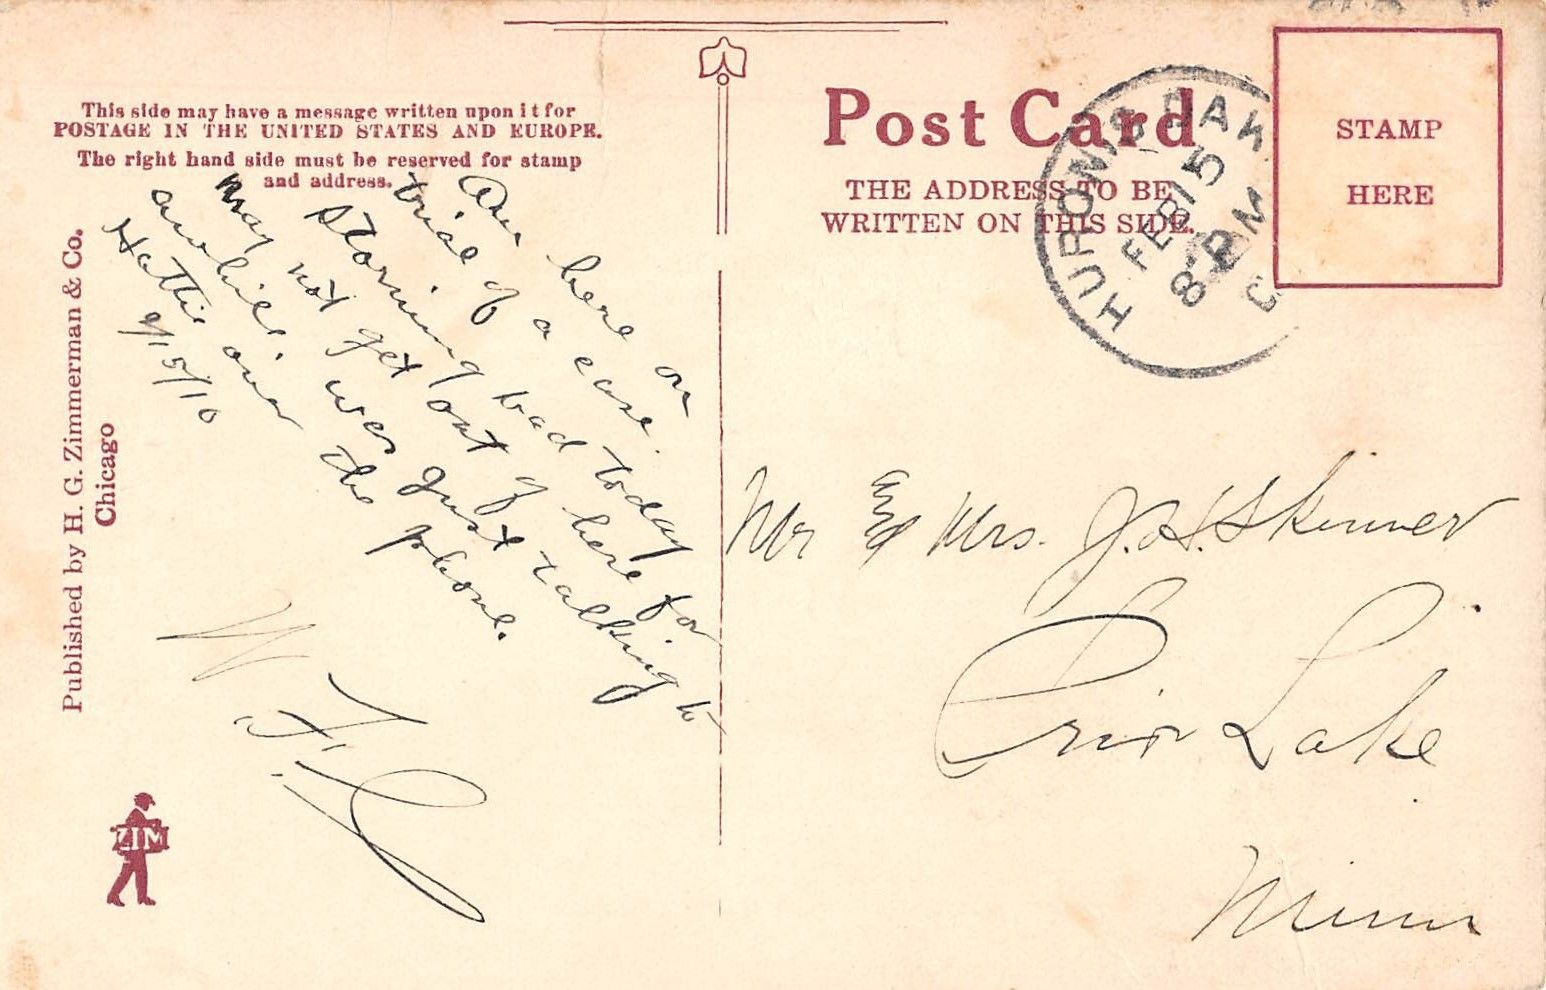 This side may have a message written upon it for
POSTAGE IN THE UNITED STATES AND EUROPE.
The right hand side must be reserved for stamp
and address.
Am here on
trial of a case.
Storming bad today
may not get out of here for
awhile. was just talking to
Hattie over the phone.
2/15/10
W F
Published by H. G. Zimmerman & Co.
Chicago
ZIM
Post Card
THE ADDRESS TO BE
WRITTEN ON THIS SIDE.
HURON S. DAK.
FEB 15
8 PM
STAMP
HERE
Mr and Mrs. J. H. Skinner
Prior Lake
Minn